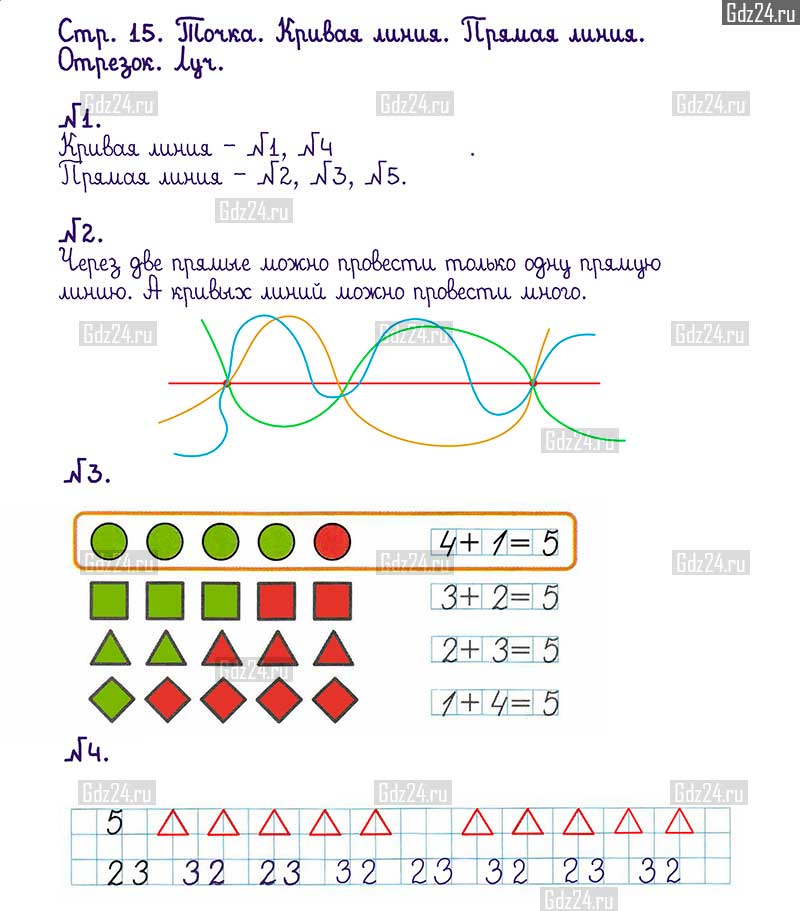 Gdz24.ru
Стр. 15. Точка. Кривая линия. Прямая линия.
Отрезок. Луч.
Gdz24.ru Gdz24.ru Gdz24.ru
№1.
Кривая линия - №1, №4 .
Прямая линия - №2, №3, №5.
Gdz24.ru
№2.
Через две прямые можно провести только одну прямую
линию. А кривых линий можно провести много.
Gdz24.ru Gdz24.ru Gdz24.ru
Gdz24.ru
№3.
4+1=5
Gdz24.ru Gdz24.ru Gdz24.ru
3+2=5
2+3=5
Gdz24.ru
1+4=5
№4.
Gdz24.ru Gdz24.ru Gdz24.ru
5
23 32 23 32 23 32 23 32
Gdz24.ru